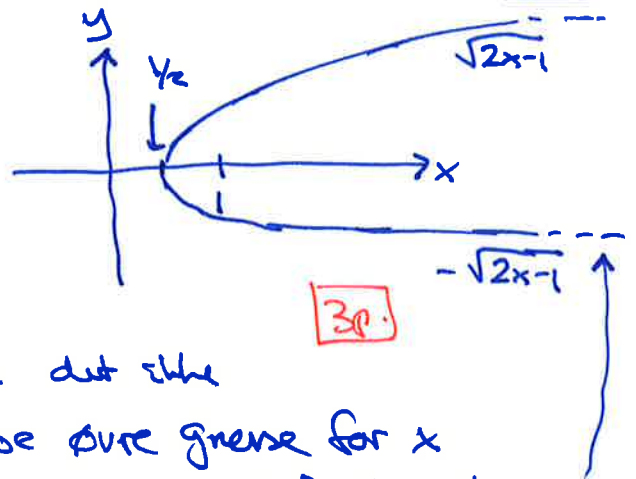 y
1/2
√2x-1
x
1
-√2x-1
3p.
det ikke
øvre grense for x